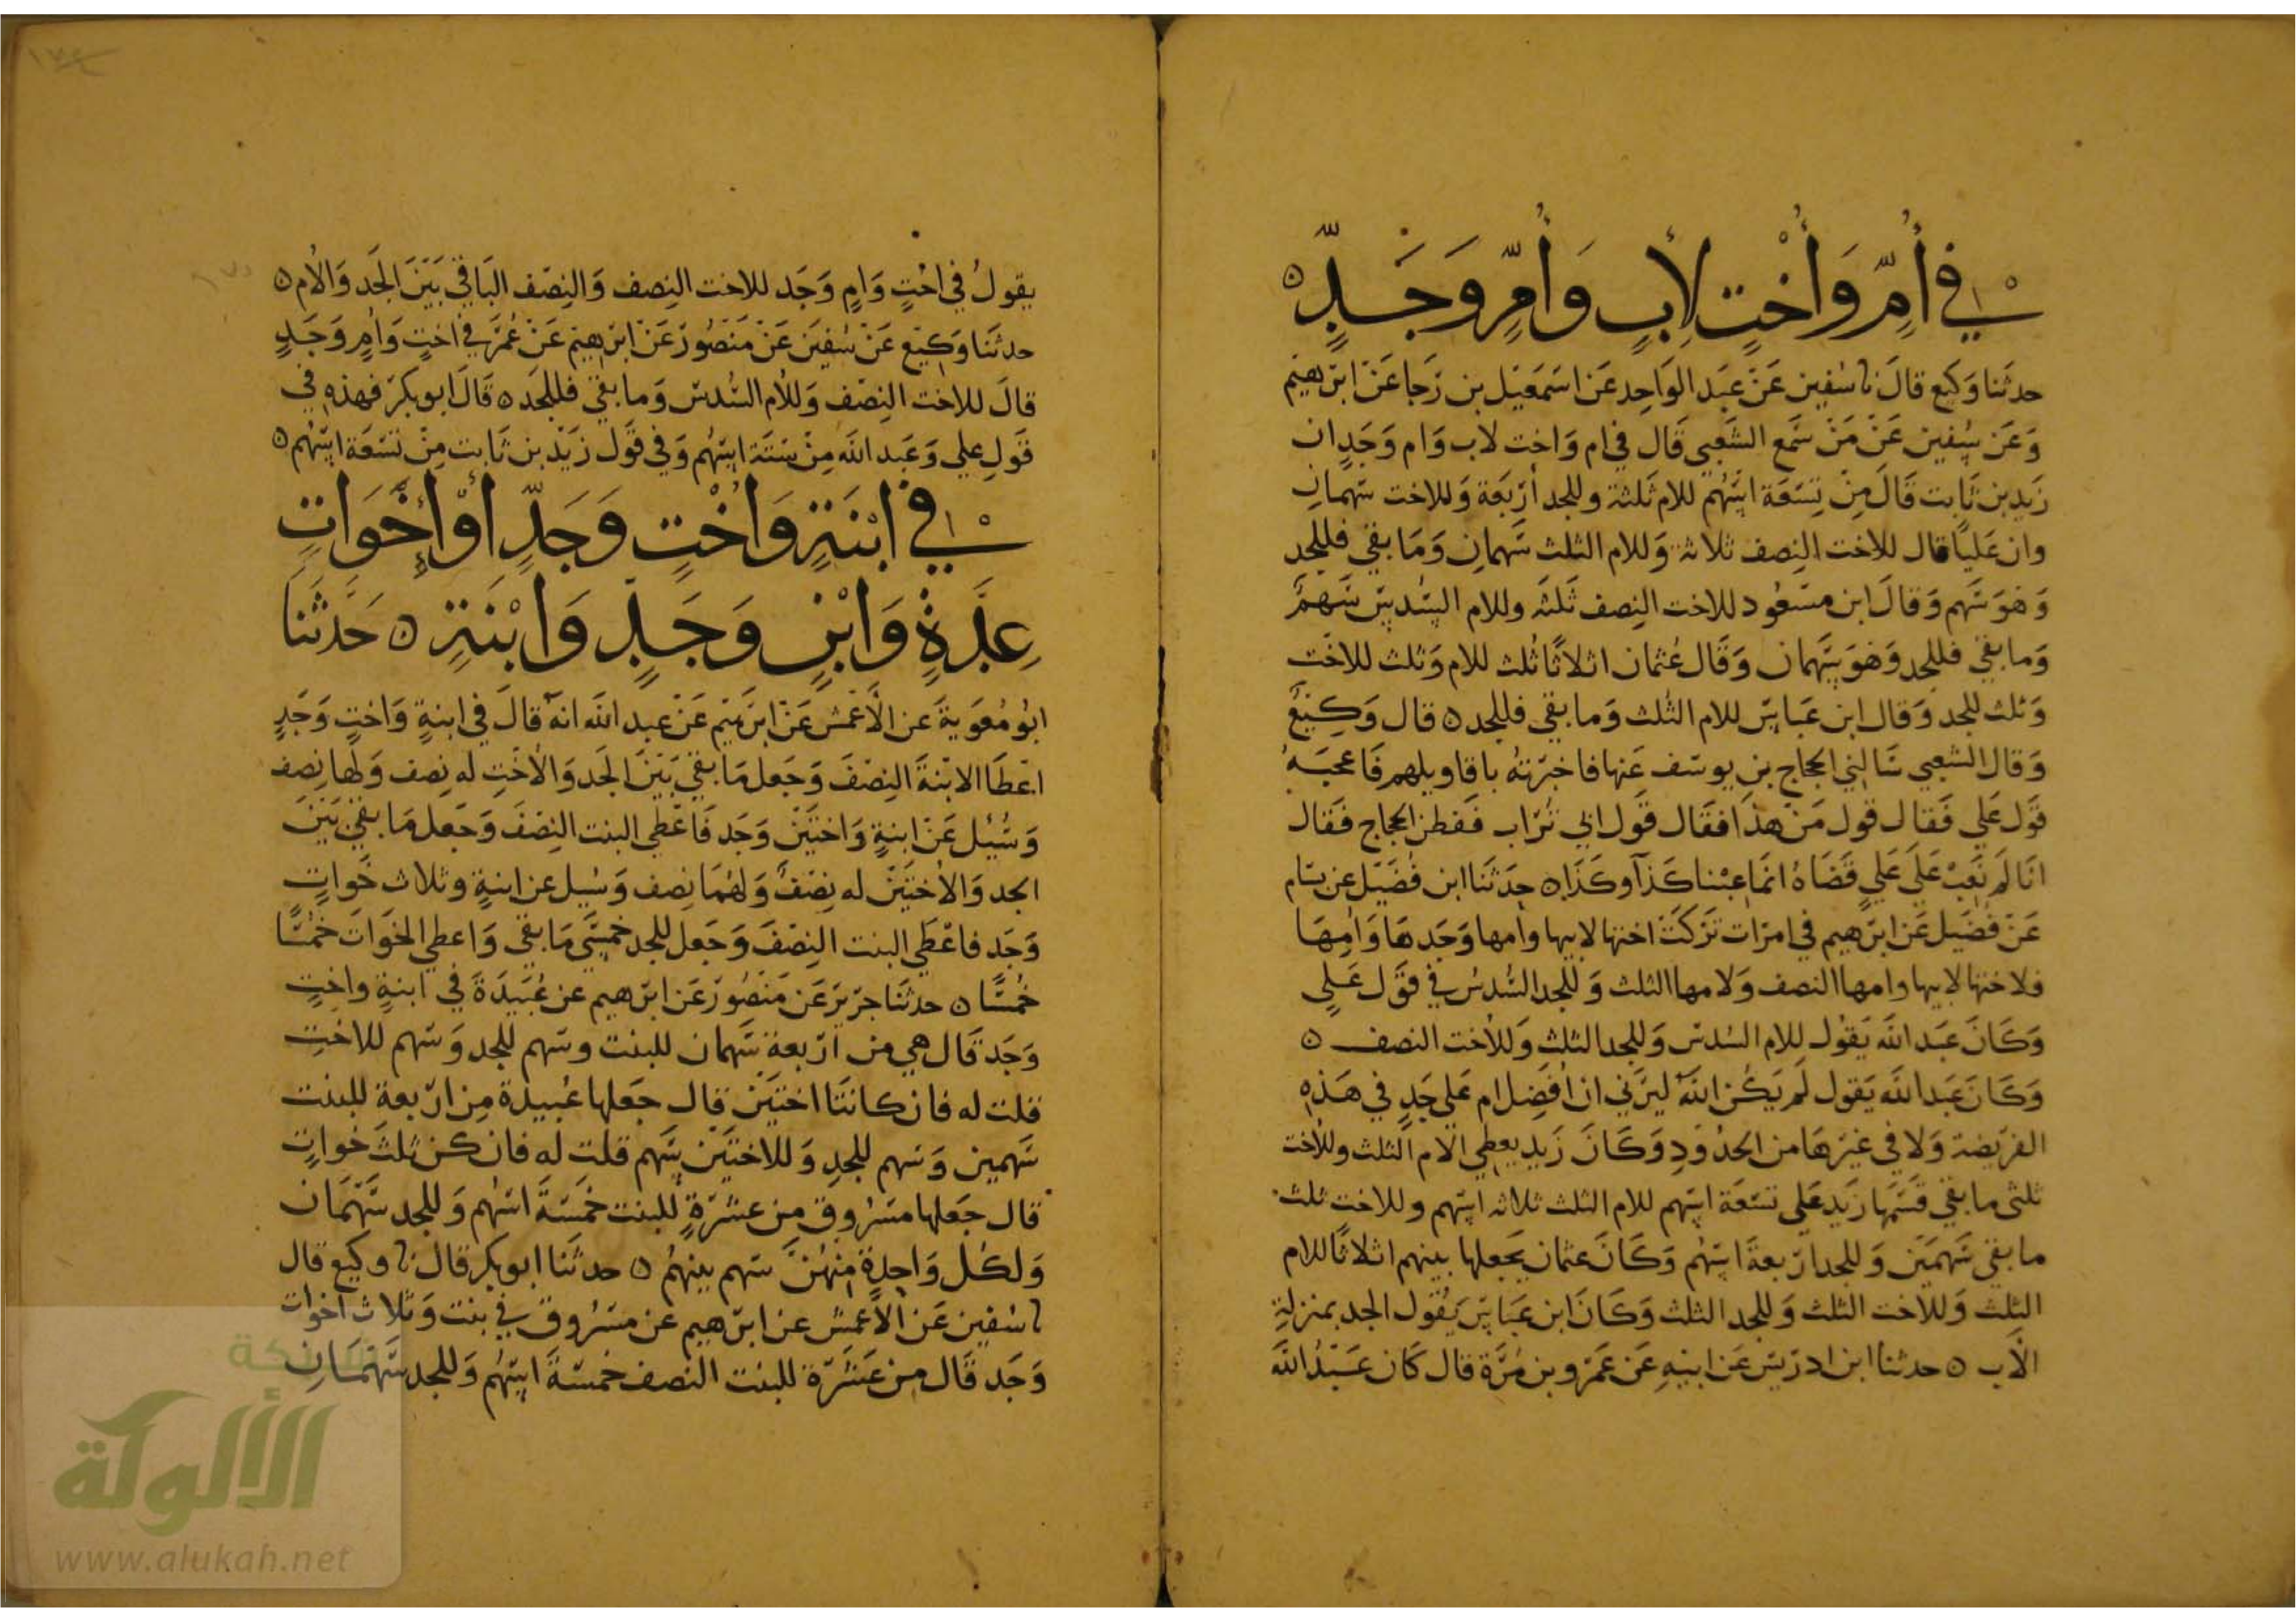 في أُمِّ وَأُخْتٍ لِأَبٍ وَأُمٍّ وَجَدٍّ ه
حدثنا وَكيع قالَ نا سُفين عَنْ عَبَد الوَاحِد عَن اسمَعيْل بن رَجا عَنْ ابرهيم
وَعَن سُفين عَنْ مَنْ سَمع الشَعبي قَال في ام وَاخت لاب وَام وَجَدٍ ان
زَيد بن ثَابت قَالَ مِنْ تِسَعَة اسهُم للام ثَلثة وللجد أرْبَعة وَللاخت سَهمانِ
وان عَليًا قال للاخت النِصف ثلاثة وَللام الثلث سَهمانِ وَمَا بقي فللجد
وَهوَ سَهم وَقالَ ابن مسَعُود للاخت النِصف ثَلثه وللام السُدس سَهمٌ
وَما بقي فللجد وَهوَ سَهمان وَقَال عُثمان اثلاثًا ثُلث للام وَثلث للاخت
وَثلث للجد وَقال ابن عَباس للام الثلث وَما بقي فللجد ه قال وَكِيعٌ
وَقال الشعبي سَالني الحجاج بن يوسَف عَنها فاخبَرتهُ باقاويلهم فَاعجبَهُ
قَول عَلي فَقال قول مَنْ هذا فقَال قَول ابي تُرَاب فَفطن الحجاج فقال
انَا لَم نَعِبْ عَلَى عَلي قَضَاهُ انمَا عِبْنا كَذا وكَذا ه حِدَثنَا ابن فُضَيل عن بسَام
عَنْ فضَيل عَن ابرَهيم في امرَات تركَتَ اختها لابيها وامها وَجَدها وَامِهَا
فلاختها لابيها وامها النصف وَلامها الثلث وَللجد السُدسُ في قوَل عَلي
وَكَانَ عَبَد الله يَقول للام السُدس وَللجد الثلث وَللاخت النصف ه
وَكَانَ عَبَد الله يَقول لَم يَكُن الله ليَرَني ان افَضِل ام عَلي جَدٍ في هَذهِ
الفرَيضة وَلا في غيَرهَا من الحدُودِ وَكَانَ زَيد يعطي الام الثلث وللاخت
ثلثي ما بقي قسَمَها زَيد عَلي تسَعَة اسَهم للام الثلث ثلاثه اسهم وللاخت ثلث
ما بقي سَهمَين وَللجد ارَبعة اسهُم وَكَانَ عثمان يَجعلها بينهم اثلاثًا للام
الثلث وَللاخت الثلث وَللجد الثلث وَكَانَ ابن عَباس يَقُول الجد بمنزلةِ
الأَب ه حدثنا ابن ادرَيس عَن ابيهِ عَن عَمَرو بن مُرَّة قال كَان عَبَدُ اللَّه
يقولُ في اخْتٍ وَامٍ وَجَد للاخت النِصف وَالنِصَف البَاقي بَيَنَ الجَد وَالأم ه
حدثنَا وَكِيْع عَنْ سُفيَن عَنْ مَنصُور عَنْ ابرَهيم عَنْ عُمَر في اختٍ وَامٍ وَجَدٍ
قالَ للاخت النِصَف وَللام السُدسَ وَما بقي فللجَد ه قَالَ ابو بكر فهذه في
قَولِ علي وَعَبد الله مِنْ سَتَة اسَهُم وَفي قَول زَيَد بن ثَابت مِنْ تسَعَة اسَهُم ه
في ابْنَةٍ وَاخْتٍ وَجَدٍّ أَوْ أَخَوَاتٍ
عِدَّةٍ وَابْنٍ وَجَدٍ وَابْنَةٍ ه حَدَّثَنَا
ابُو مُعوَيةَ عَن الأَعْمش عَنْ ابرَهَيم عَنْ عبد الله انهُ قالَ في ابنةٍ وَاختٍ وَجَدٍ
اعْطَا الابنةَ النِصَفَ وَجَعل مَا بقي بَيَنَ الجَد وَالأُختِ له نِصف وَلها نِصف
وَسُئِل عَنْ ابنةٍ وَاختَيَن وَجَد فَاعْطي البنت النِصَفَ وَجَعل مَا بقي بَيَنَ
الجد وَالأختَيَن له نِصَفٌ وَلهُمَا نِصف وَسُيل عن ابنةٍ وثلاث خَواتٍ
وَجَد فاعْطَي البنت النِصَفَ وَجَعل للجد خمسَي مَا بقي وَاعطي الخوَات خمُسًا
خُمسًا ه حدثنَا جرَير عَن مَنصُور عَن ابرَهيم عن عُبَيدَةَ في ابنةٍ واختٍ
وَجَد قَال هي من ارَبعة سَهمان للبنت وسَهم للجد وَسَهم للاختِ
قلت له فان كانتَا اختَيَن قال جَعلها عُبيدة مِن ارَبعة للبنت
سَهمين وَسَهم للجدِ وَللاختيَن سَهم قلت له فان كن ثلثَ خواتٍ
قال جَعلها مسَرُوق من عشرَةٍ للبنت خمَسَةَ اسَهُم وَللجد سَهمَان
وَلكُل وَاحِدةٍ مِنهُنَّ سَهم بينهُم ه حدثنَا ابو بكر قال نا وكيع قال
نا سُفين عَن الأَعمش عن ابرَهيم عن مسَرُوق في بنت وَثلاث اخوات
وَجَد قَال من عَشَرَة للبنت النصف خمسَةَ اسَهُم وَللجد سَهمَانِ
شبكة
الألوكة
www.alukah.net